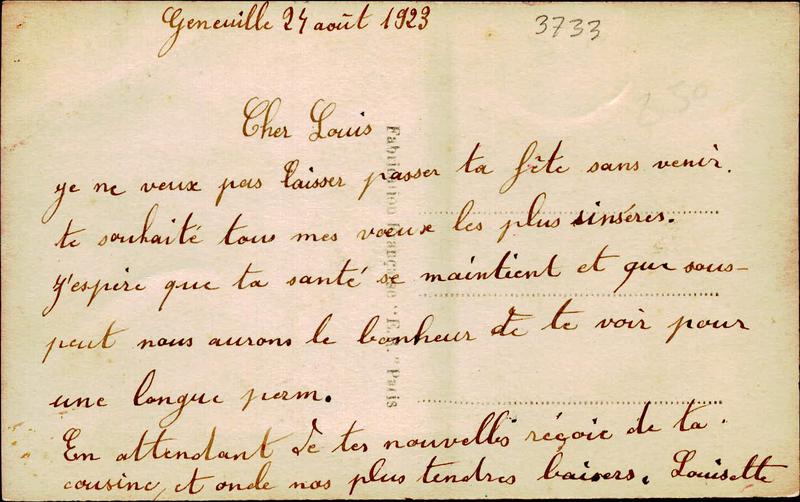 Geneuille 24 août 1923
3733
Cher Louis
je ne veux pas laisser passer ta fête sans venir.
te souhaité tous mes vœux les plus sinsères.
J'espère que ta santé se maintient et que sous-
peut nous aurons le bonheur de te voir pour
une longue perm.
En attendant de tes nouvelles reçoie de ta
cousine, et onde nos plus tendres baisers. Louisette
Fabrication Française "E. " Paris